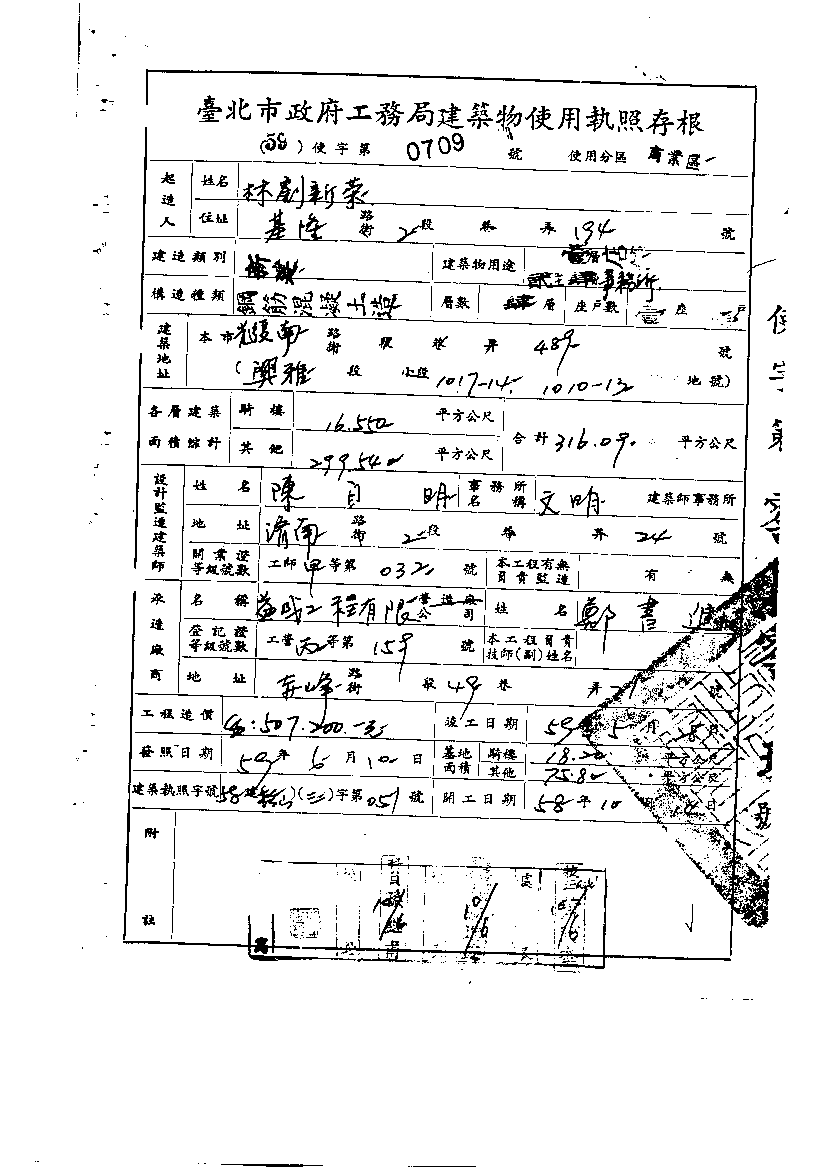 臺北市政府工務局建築物使用執照存根
(59)使字第 0709 號 使用分區 商業區
起造人 姓名 林劉新榮
住址 基隆 路街 2段 巷 弄 194 號
建造類別 建築物用途 事務所
構造種類 鋼筋混凝土造 層數 層 座戶數 壹座 戶
建築地址 本市光復南 路街 段 巷 弄 489 號
(興雅 段 小段 1017-14. 1010-13 地號)
各層建築面積總計 騎樓 16.550 平方公尺 合計 316.09 平方公尺
其他 299.540 平方公尺
設計監造建築師 姓名 陳 明 事務所名稱 文明 建築師事務所
地址 濟南 路街 2段 巷 弄 24 號
開業證等級號數 工師甲等第 032 號 本工程有無負責監造 有 無
承造廠商 名稱 益成工程有限公司 營造廠 姓名 鄭書進
登記證等級號數 工營丙等第 159 號 本工程負責技師(副)姓名
地址 路街 段 49 巷 弄 號
工程造價 507.200.-元 竣工日期 59年 5月 日
發照日期 59年 6月 10日 基地面積 騎樓 18.20 平方公尺
其他 75.80 平方公尺
建築執照字號 58建松山(三)字第051號 開工日期 58年 10月 日
附註
使字第 號